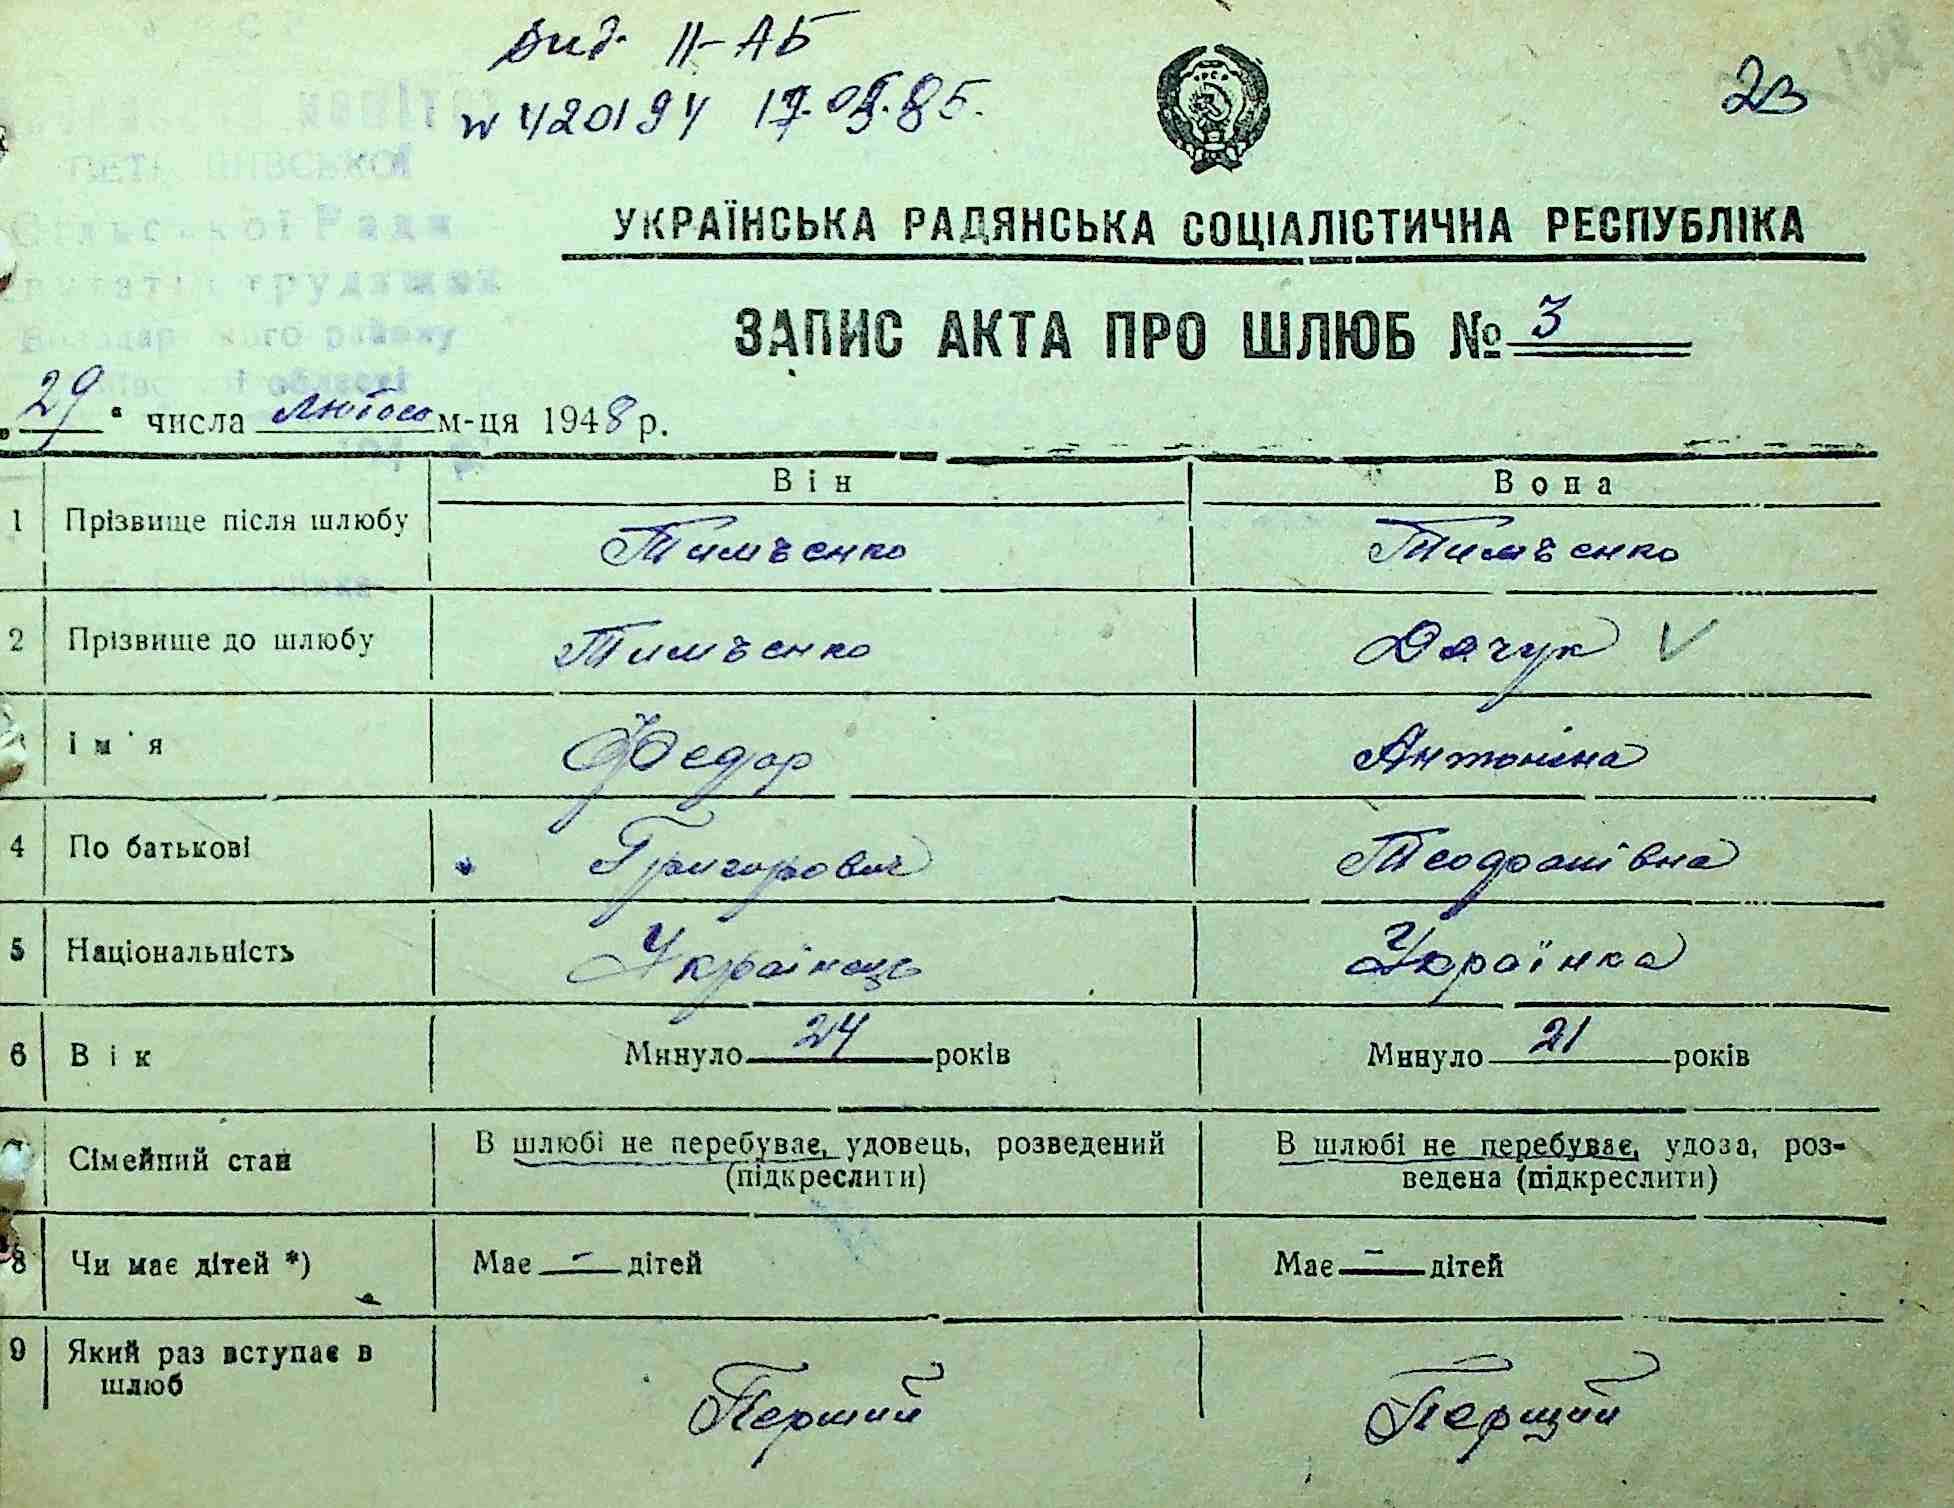 вид. ІІ-АБ
№ 420194 17.05.85.
23
УКРАЇНСЬКА РАДЯНСЬКА СОЦІАЛІСТИЧНА РЕСПУБЛІКА
ЗАПИС АКТА ПРО ШЛЮБ № 3
„29“ числа лютого м-ця 1948 р.
Він Вона
1 Прізвище після шлюбу Тимченко Тимченко
2 Прізвище до шлюбу Тимченко Дячук
Ім'я Федор Антоніна
4 По батькові Григорович
5 Національність Українець Українка
6 Вік Минуло 24 років Минуло 21 років
7 Сімейний стан В шлюбі не перебуває, удовець, розведений В шлюбі не перебуває, удова, роз-
(підкреслити) ведена (підкреслити)
8 Чи має дітей *) Має - дітей Має - дітей
9 Який раз вступає в
шлюб Перший Перщий